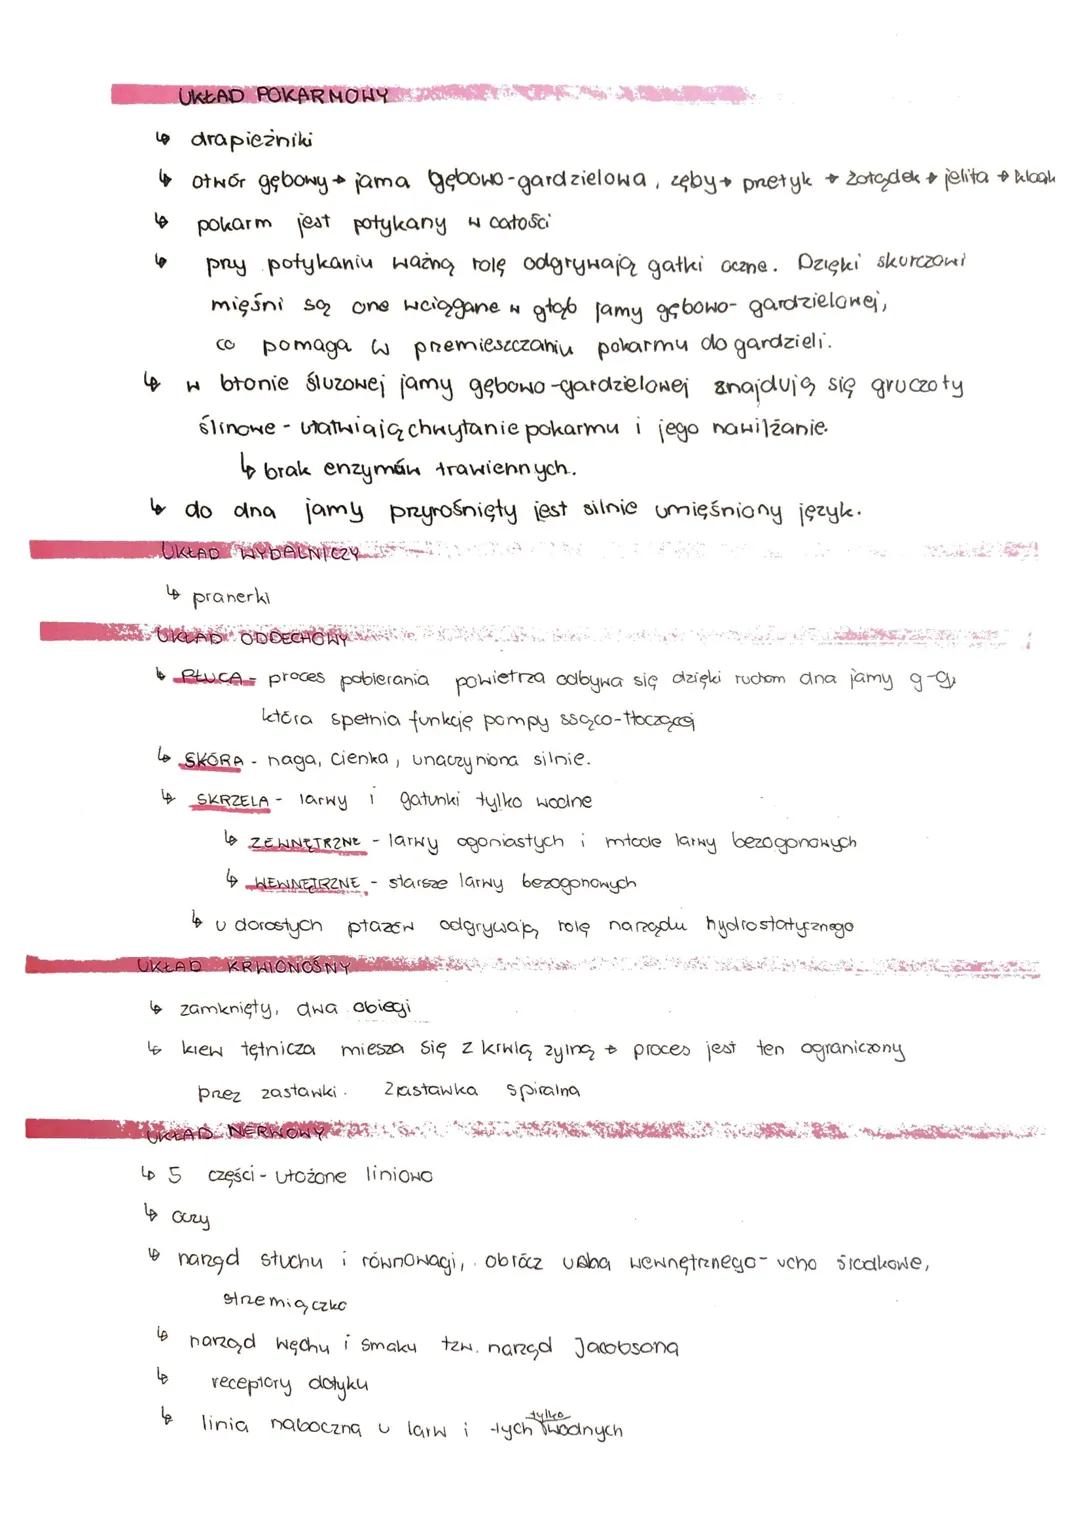 UKŁAD POKARMOWY
↳ drapieżniki
↳ otwór gębowy → jama gębowo-gardzielowa, zęby → przełyk → żołądek → jelita → kloak
↳ pokarm jest połykany w całości
↳ przy połykaniu ważną rolę odgrywają gałki oczne. Dzięki skurczowi
mięśni są one wciągane w głąb jamy gębowo-gardzielowej,
co pomaga w przemieszczaniu pokarmu do gardzieli.
↳ w błonie śluzowej jamy gębowo-gardzielowej znajdują się gruczoły
ślinowe - ułatwiają chwytanie pokarmu i jego nawilżanie.
↳ brak enzymów trawiennych.
↳ do dna jamy przyrośnięty jest silnie umięśniony język.
UKŁAD WYDALNICZY
↳ pranerki
UKŁAD ODDECHOWY
↳ PŁUCA - proces pobierania powietrza odbywa się dzięki ruchom dna jamy g-g,
która spełnia funkcję pompy ssąco-tłoczącej
↳ SKÓRA - naga, cienka, unaczyniona silnie.
↳ SKRZELA - larwy i gatunki tylko wodne
↳ ZEWNĘTRZNE - larwy ogoniastych i młode larwy bezogonowych
↳ WEWNĘTRZNE - starsze larwy bezogonowych
↳ u dorosłych płazów odgrywają rolę narządu hydrostatycznego
UKŁAD KRWIONOŚNY
↳ zamknięty, dwa obiegi
↳ krew tętnicza miesza się z krwią żylną → proces jest ten ograniczony
przez zastawki. Zastawka spiralna
UKŁAD NERWOWY
↳ 5 części - ułożone liniowo
↳ oczy
↳ narząd słuchu i równowagi, obrócz ucha wewnętrznego - ucho środkowe,
strzemiączko
↳ narząd węchu i smaku tzw. narząd Jacobsona
↳ receptory dotyku
↳ linia naboczna u larw i tych tylko wodnych